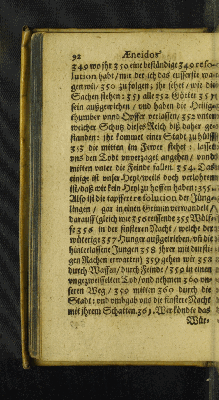 92 Æneidos
349 wo jhr 350 eine beständige 349 reso-
lution habt/ mit der ich das eusserste wa-
gen wil/ 350 zu folgen; jhr sehet/ wie die
Sachen stehen: 351 alle 352 Götter 351
sein außgewichen/ und haben die Heilige-
thumber unnd Opffer verlassen/ 352 unter
welcher Schutz dieses Reich biß daher ge-
standen: jhr kommet einer Stadt zu hülff
353 die mitten im Fewer stehet: lasset
uns den Todt unverzaget angehen/ unnd
mitten unter die Feinde fallen. 354. Das
einige ist unser Heyl/ weils doch verlohren
ist/ daß wir kein Heyl zu hoffen haben: 355.
Also ist die tapffere resolution der Jüng-
lingen/ gar in einen Grimmen verwandelt/
darauff (gleich wie 356 reissende 355 Wölf-
fe 356 in der finsteren Nacht/ welche der
wüterige 357 Hunger außgetrieben/ und die
hinterlassene Jungen 358 ihrer mit dursti-
gen Rachen erwarten) 359 gehen wir 358
durch Waffen/ durch Feinde/ 359 in einen
ungezweiffelten Tod/ und nehmen 360 un-
seren Weg/ 359 mitten 360 durch die
Stadt: und umbgab uns die finstere Nacht
mit jhrem Schatten. 361. Wer köndte das
Wür-